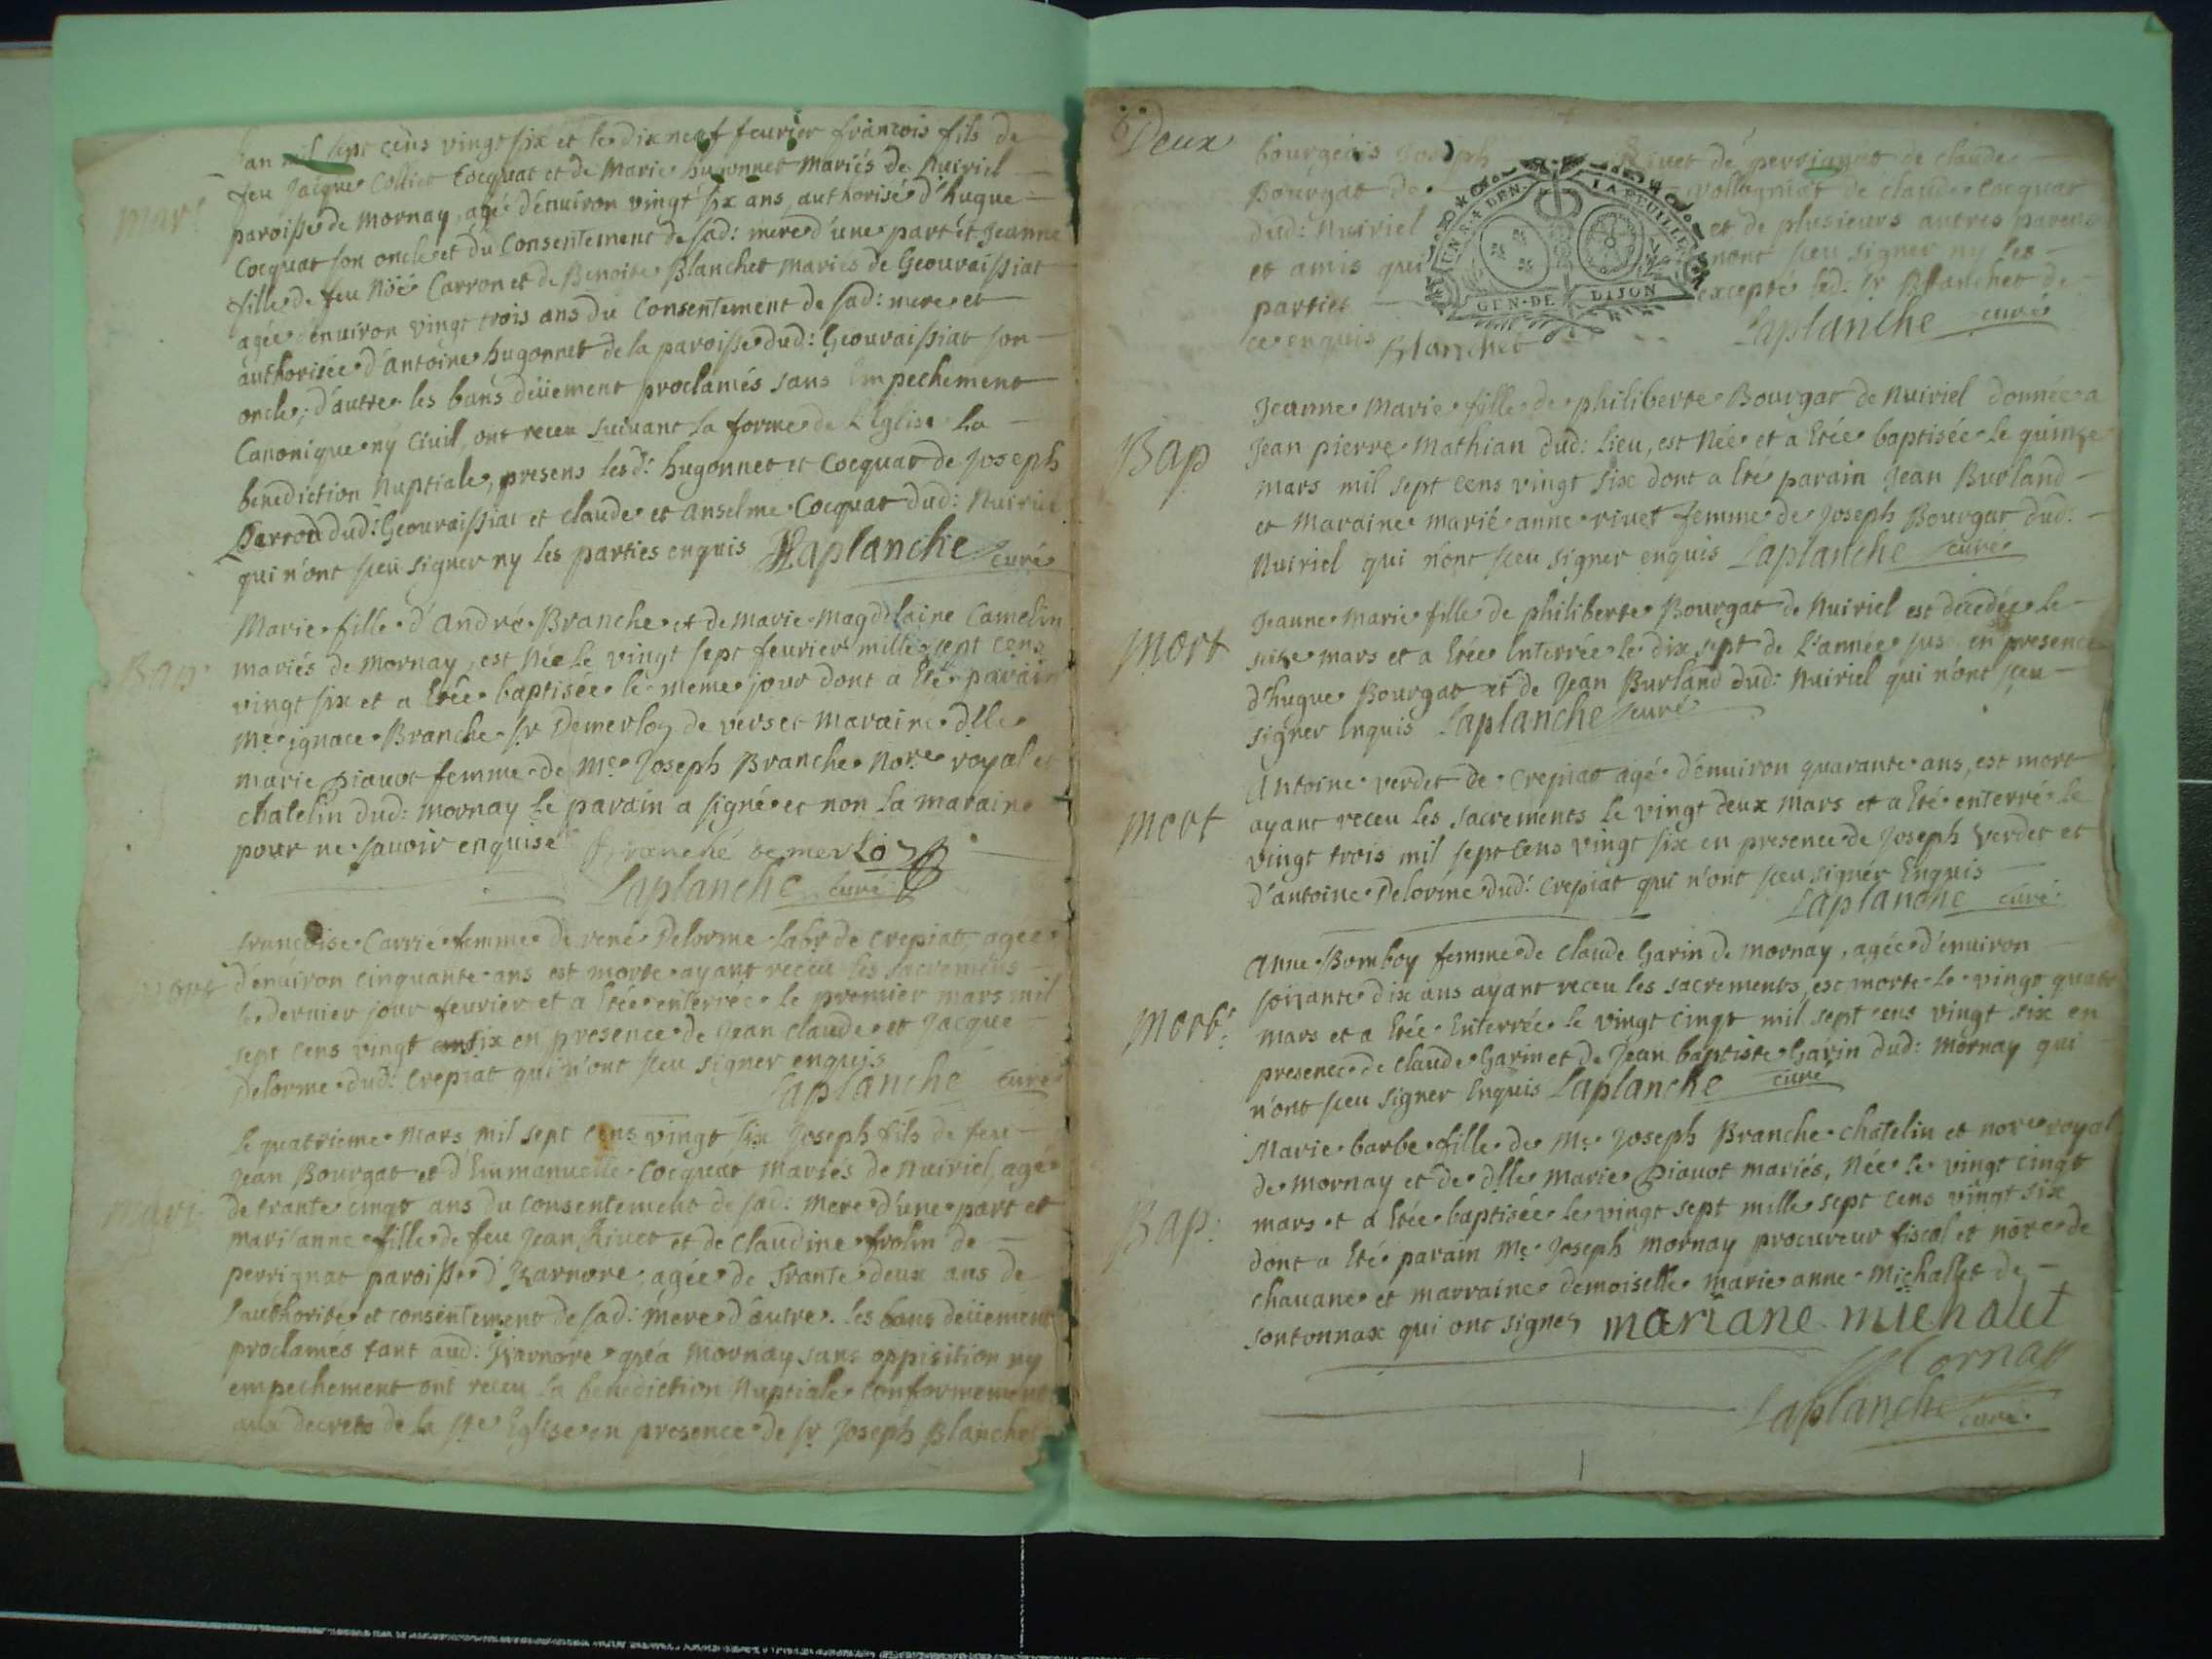 an mil sept cens vingt six et le dix neuf feurier francois fils de
feu Jacque Collict Cocquat et de Marie hugonnet mariés de Nuiriel
Mar:
paroisse de mornay, agé d'enuiron vingt six ans, authorisé d'hugue
Cocquat son oncle et du Consentement de sad: mere d'une part et Jeanne
fille de feu Noë Carron et de Benoite Blanchet mariés de Geouraissiat
agée d'enuiron vingt trois ans du Consentement de sad: mere et
authorisée d'antoine hugonnet de la paroisse dud: Geouraissiat son
oncle, d'autre les bans deüement proclamés sans Empechement
Canonique ny Ciuil, ont receu suiuant la forme de L'Eglise la
benediction Nuptiale, presens lesd: hugonnet et Cocquat de Joseph
dud: Geouraissiat et claude et anselme Cocquat dud: Nuiriel
qui n'ont sceu signer ny les parties enquis Laplanche curé
Marie fille d'andré Branche et de marie magdelaine Camelin
Bap:
mariés de mornay, est Née le vingt sept feurier mille sept cens
vingt six et a Etée baptisée le meme jour dont a Eté parain
Me: ignace Branche sr Demerloz de vers et maraine dlle
marie Piauot femme de Me: Joseph Branche Nore royal et
chatelin dud: mornay le parain a signé et non la maraine
pour ne sauoir enquise Branche demerloz
Laplanche curé
francoise Carrié femme de rené Delorme labr de crepiat, agée
Mort
d'enuiron cinquante ans est morte ayant receu les sacremens
le dernier jour feurier et a Etée enterrée le premier mars mil
sept cens vingt six en presence de Jean claude et Jacque
Delorme dud: Crepiat qui n'ont sceu signer enquis
Laplanche curé
Le quatrieme Mars mil sept cens vingt six Joseph fils de feu
Jean Bourgat et d'Emmanuelle Cocquat mariés de Nuiriel, agé
Mari:
de trante cinqt ans du consentement de sad: mere d'une part et
mari'anne fille de feu Jean Riuet et de Claudine frolin de
perrignat paroisse d'Izarnore, agée de trante deux ans de
l'authorité et consentement de sad: mere d'autre. les bans deüement
proclamés tant aud: Izarnore qu'a mornay sans opposition ny
empechement ont receu la benediction Nuptiale conformement
aux decrets de la ste Eglise en presence de sr Joseph Blanchet
Deux
bourgeois Joseph Riuet de perrignat de claude
Bourgat de vollogniat de claude cocquat
dud: Nuiriel et de plusieurs autres parens
et amis qui n'ont sceu signer ny les
parties excepté led: sr Blanchet de
ce enquis Blanchet Laplanche curé
GEN · DE DIJON
LA FEUILLE
Jeanne Marie fille de philiberte Bourgat de Nuiriel donnée a
Bap
Jean pierre Mathian dud: lieu, est Née et a Etée baptisée le quinze
mars mil sept cens vingt six dont a Eté parain Jean Burland
et Maraine marié anne riuet femme de Joseph Bourgat dud:
Nuiriel qui n'ont sceu signer enquis Laplanche curé
Jeanne Marie fille de philiberte Bourgat de Nuiriel est decedée le
Mort
seize mars et a Etée Enterrée le dix sept de L'année sus. en presence
d'hugue Bourgat et de Jean Burland dud: Nuiriel qui n'ont sceu
signer Enquis Laplanche curé
Antoine verdet de Crepiat agé d'enuiron quarante ans, est mort
Mort
ayant receu les sacrements le vingt deux mars et a Eté enterré le
vingt trois mil sept cens vingt six en presence de Joseph verdet et
d'antoine Delorme dud: Crepiat qui n'ont sceu signer Enquis
Laplanche curé
Anne Bomboy femme de Claude Garin de mornay, agée d'enuiron
soixante dix ans ayant receu les sacrements, est morte le vingt quatre
Mort:
mars et a Etée Enterrée le vingt cinqt mil sept cens vingt six en
presence de claude Garin et de Jean baptiste Garin dud: mornay qui
n'ont sceu signer Enquis Laplanche curé
Marie barbe fille de Me: Joseph Branche chatelin et nore royal
de mornay et de dlle marie Piauot mariés, Née le vingt cinqt
Bap:
mars et a Etée baptisée le vingt sept mille sept cens vingt six
dont a Eté parain Me: Joseph mornay procureur fiscal et nore de
chauane et marraine demoiselle marie anne Michallet de
sontonnax qui ont signez mariane michalet
Mornay
Laplanche curé